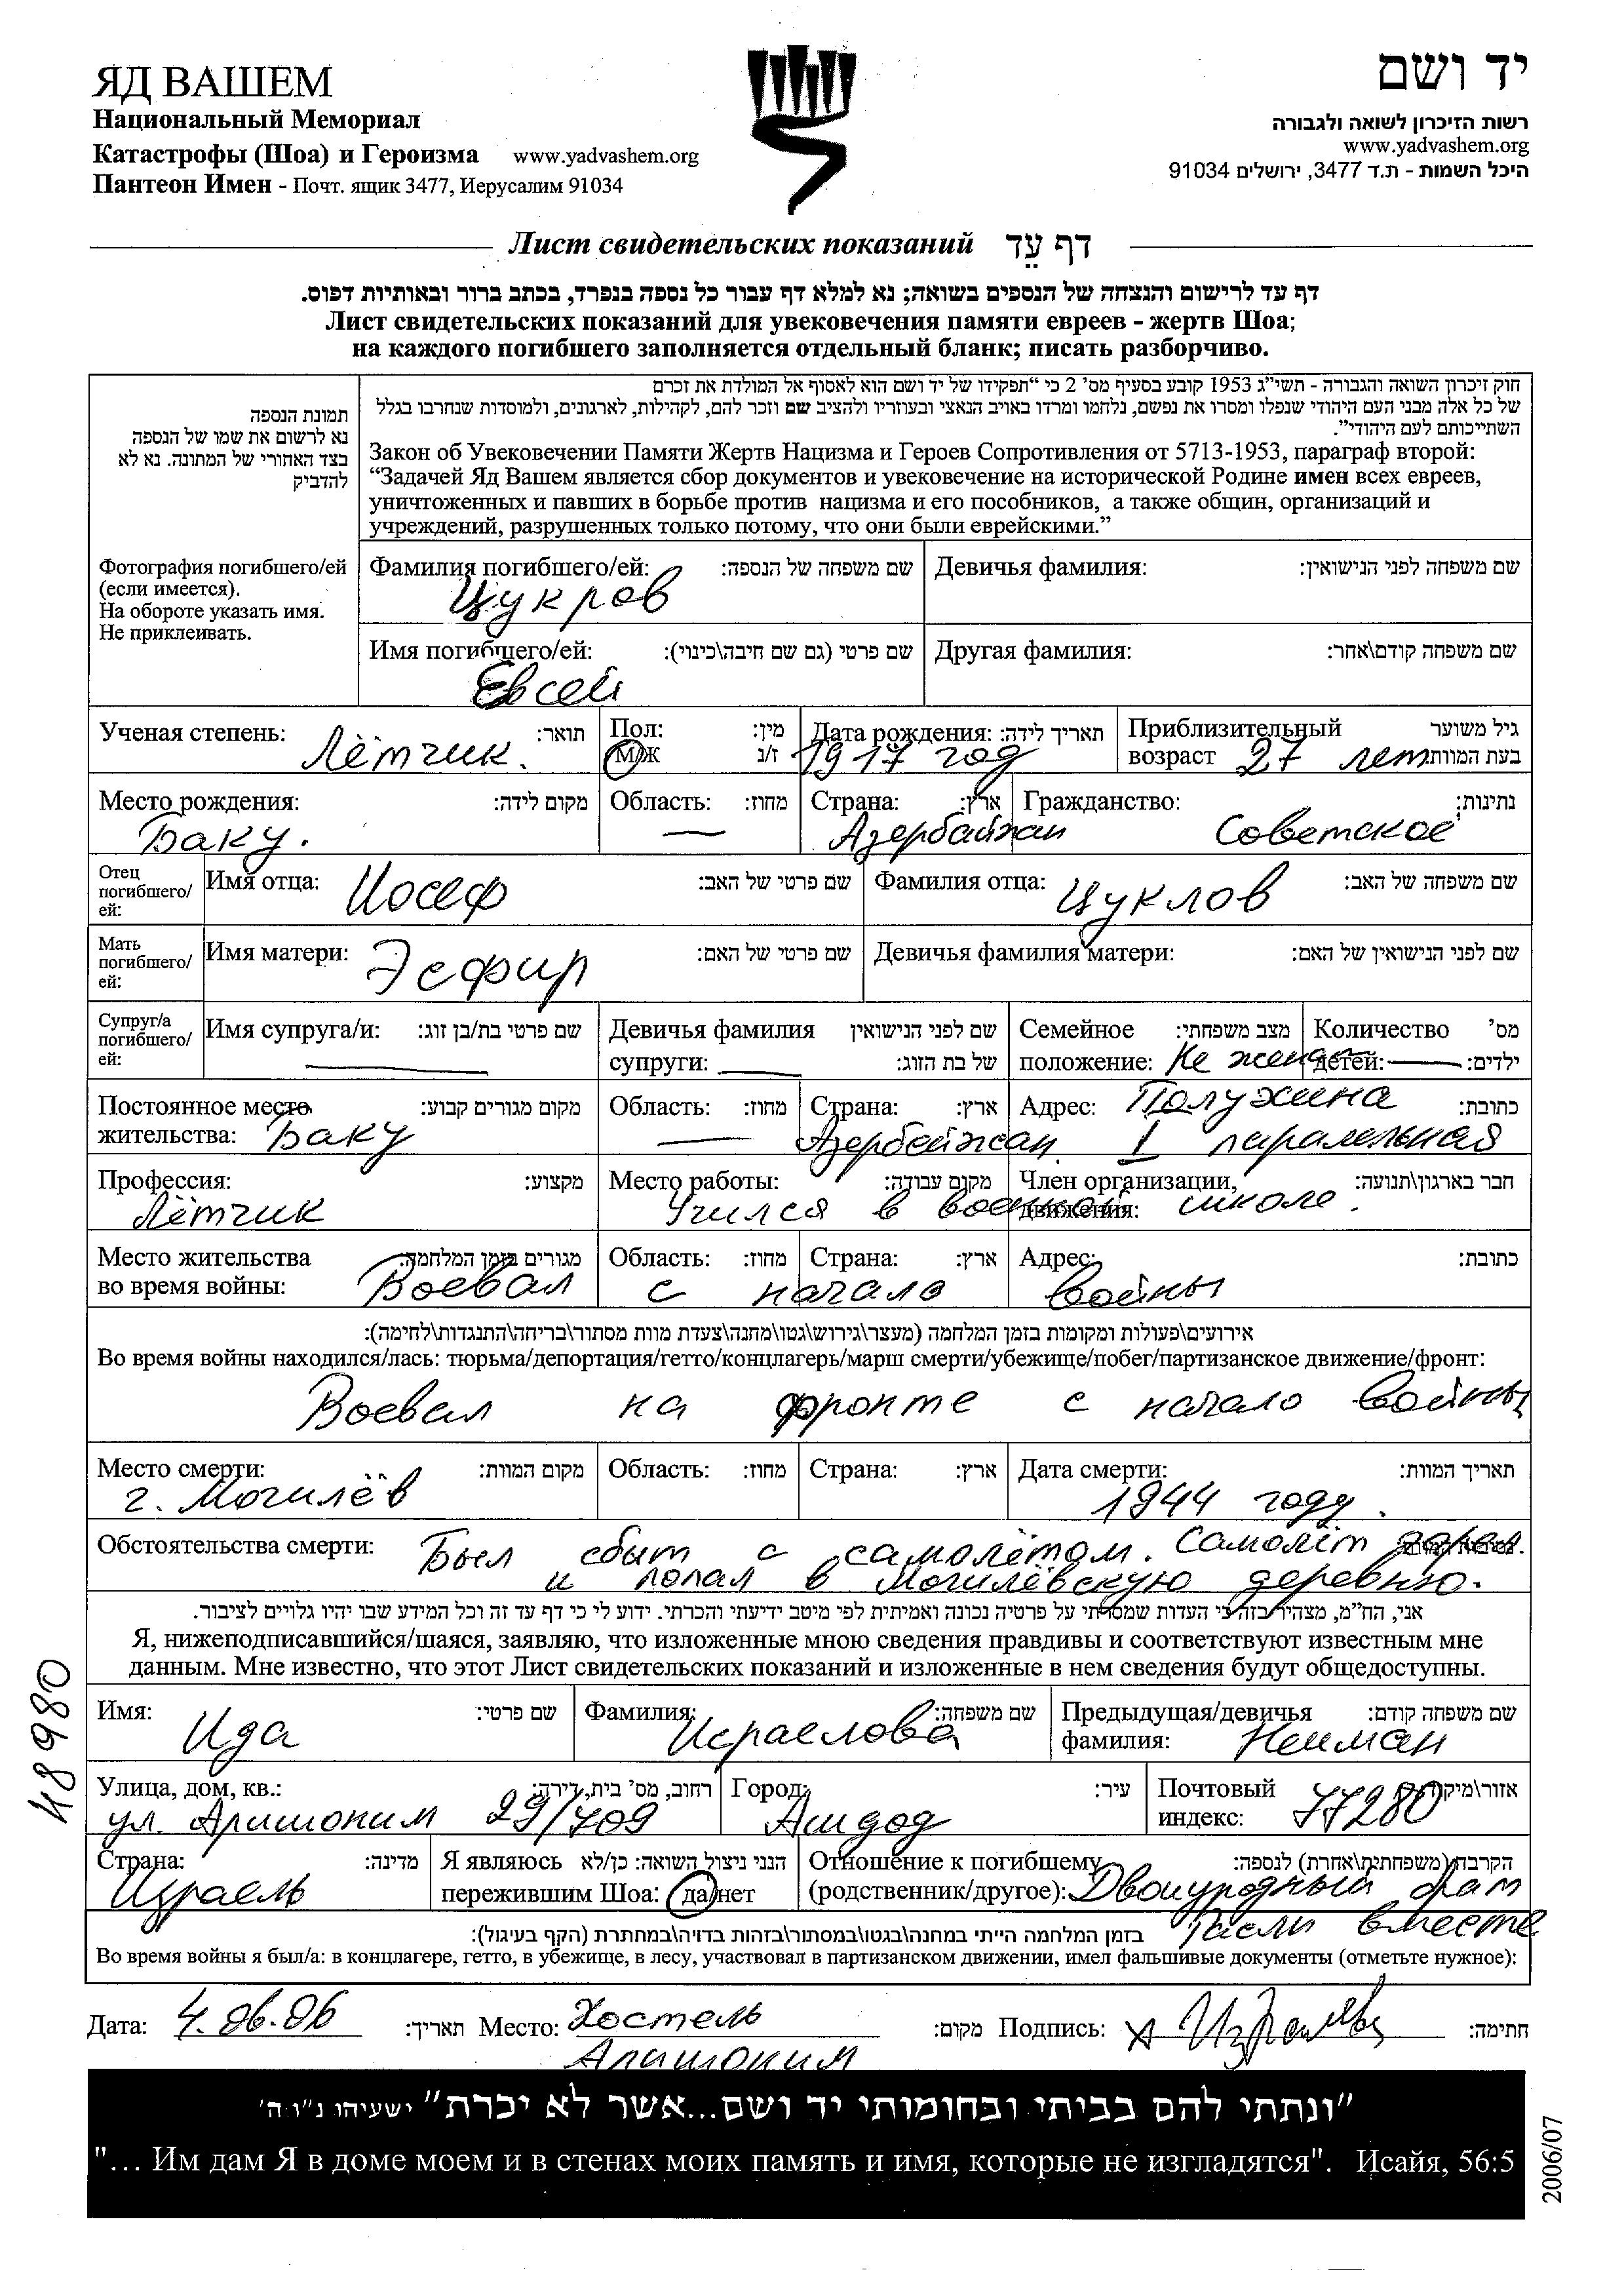 ЯД ВАШЕМ
Национальный Мемориал
Катастрофы (Шоа) и Героизма www.yadvashem.org
Пантеон Имен - Почт. ящик 3477, Иерусалим 91034
יד ושם
רשות הזיכרון לשואה ולגבורה
www.yadvashem.org
היכל השמות - ת.ד 3477, ירושלים 91034
Лист свидетельских показаний דף עֵד
דף עד לרישום והנצחה של הנספים בשואה; נא למלא דף עבור כל נספה בנפרד, בכתב ברור ובאותיות דפוס.
Лист свидетельских показаний для увековечения памяти евреев - жертв Шоа;
на каждого погибшего заполняется отдельный бланк; писать разборчиво.
תמונת הנספה
נא לרשום את שמו של הנספה
בצד האחורי של המתונה. נא לא
להדביק
Фотография погибшего/ей
(если имеется).
На обороте указать имя.
Не приклеивать.
חוק זיכרון השואה והגבורה - תשי"ג 1953 קובע בסעיף מס' 2 כי "תפקידו של יד ושם הוא לאסוף אל המולדת את זכרם
של כל אלה מבני העם היהודי שנפלו ומסרו את נפשם, נלחמו ומרדו באויב הנאצי ובעוזריו ולהציב שם וזכר להם, לקהילות, לארגונים, ולמוסדות שנחרבו בגלל
השתייכותם לעם היהודי".
Закон об Увековечении Памяти Жертв Нацизма и Героев Сопротивления от 5713-1953, параграф второй:
“Задачей Яд Вашем является сбор документов и увековечение на исторической Родине имен всех евреев,
уничтоженных и павших в борьбе против нацизма и его пособников, а также общин, организаций и
учреждений, разрушенных только потому, что они были еврейскими.”
Фамилия погибшего/ей: שם משפחה של הנספה: Девичья фамилия: שם משפחה לפני הנישואין:
Цукров
Имя погибшего/ей: שם פרטי (גם שם חיבה\כינוי): Другая фамилия: שם משפחה קודם\אחר:
Евсей
Ученая степень: תואר: Пол: מין: Дата рождения: תאריך לידה: Приблизительный גיל משוער
Лётчик. М/Ж ז/נ 1917 год возраст 27 лет בעת המוות:
Место рождения: מקום לידה: Область: מחוז: Страна: ארץ: Гражданство: נתינות:
Баку. — Азербайжан Советское
Отец погибшего/ей: Имя отца: Иосеф שם פרטי של האב: Фамилия отца: Цуклов שם משפחה של האב:
Мать погибшего/ей: Имя матери: Эсфир שם פרטי של האם: Девичья фамилия матери: שם לפני הנישואין של האם:
Супруг/а погибшего/ей: Имя супруга/и: שם פרטי בת/בן זוג: Девичья фамилия שם לפני הנישואין Семейное מצב משפחתי: Количество מס'
супруги: של בת הזוג: положение: Не женат детей: — ילדים:
Постоянное место מקום מגורים קבוע: Область: מחוז: Страна: ארץ: Адрес: Полухина כתובת:
жительства: Баку — Азербейжсан I паралельная
Профессия: מקצוע: Место работы: מקום עבודה: Член организации, חבר בארגון\תנועה:
Лётчик Учился в военной движения: школе.
Место жительства מגורים בזמן המלחמה: Область: מחוז: Страна: ארץ: Адрес: כתובת:
во время войны: Воевал с начало войны
אירועים\פעולות ומקומות בזמן המלחמה (מעצר\גירוש\גטו\מחנה\צעדת מוות מסתור\בריחה\התנגדות\לחימה):
Во время войны находился/лась: тюрьма/депортация/гетто/концлагерь/марш смерти/убежище/побег/партизанское движение/фронт:
Воевал на фронте с начало войны
Место смерти: מקום המוות: Область: מחוז: Страна: ארץ: Дата смерти: תאריך המוות:
г. Могилёв 1944 году.
Обстоятельства смерти: Был сбыт с самолётом. Самолёт
и попал в Могилёвскую деревню.
אני, הח"מ, מצהיר בזה כי העדות שמסרתי על פרטיה נכונה ואמיתית לפי מיטב ידיעתי והכרתי. ידוע לי כי דף עד זה וכל המידע שבו יהיו גלויים לציבור.
Я, нижеподписавшийся/шаяся, заявляю, что изложенные мною сведения правдивы и соответствуют известным мне
данным. Мне известно, что этот Лист свидетельских показаний и изложенные в нем сведения будут общедоступны.
Имя: שם פרטי: Фамилия: שם משפחה: Предыдущая/девичья שם משפחה קודם:
Ида Исраелова фамилия: Нейман
Улица, дом, кв.: רחוב, מס' בית, דירה: Город: עיר: Почтовый
ул. Аришоним 29/709 Ашдод индекс: 77280
Страна: מדינה: Я являюсь הנני ניצול השואה: כן/לא Отношение к погибшему הקרבה (משפחתית\אחרת) לנספה:
Израель пережившим Шоа: да/нет (родственник/другое): Двоюродный брат
בזמן המלחמה הייתי במחנה\בגטו\במסתור\בזהות בדויה\במחתרת (הקף בעיגול): Расли вместе
Во время войны я был/а: в концлагере, гетто, в убежище, в лесу, участвовал в партизанском движении, имел фальшивые документы (отметьте нужное):
Дата: 4.06.06 תאריך: Место: Хостель מקום: Подпись: חתימה:
Аришоним
"ונתתי להם בביתי ובחומותי יד ושם...אשר לא יכרת" ישעיהו נ"ו ה'
"... Им дам Я в доме моем и в стенах моих память и имя, которые не изгладятся". Исайя, 56:5
48980
2006/07